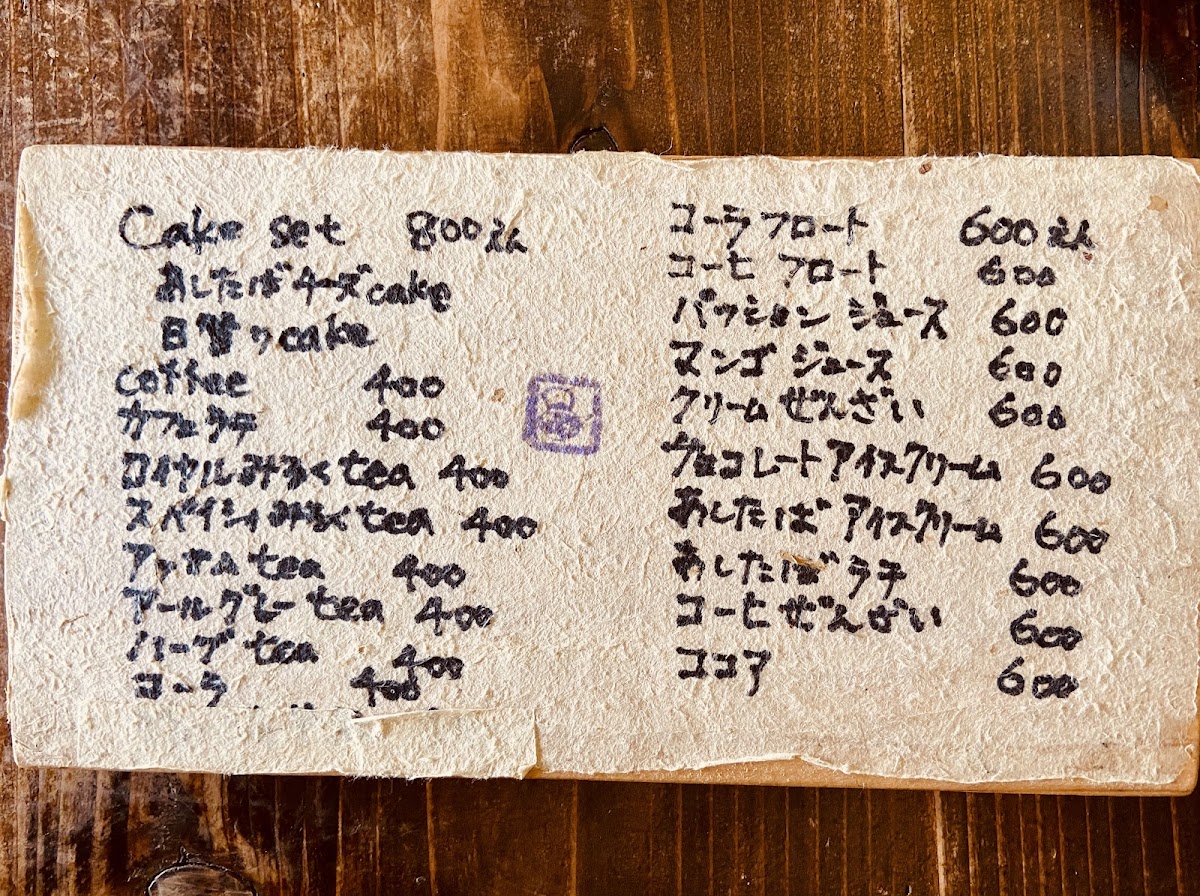 Cake set 800えん
あしたばチーズcake
日替りcake
coffee 400
カフェラテ 400
ロイヤルみるくtea 400
スパイシィみるくtea 400
アッサムtea 400
アールグレーtea 400
ハーブtea 400
コーラ 400
コーラフロート 600えん
コーヒフロート 600
パッションジュース 600
マンゴジュース 600
クリームぜんざい 600
チョコレートアイスクリーム 600
あしたばアイスクリーム 600
あしたばラテ 600
コーヒぜんざい 600
ココア 600